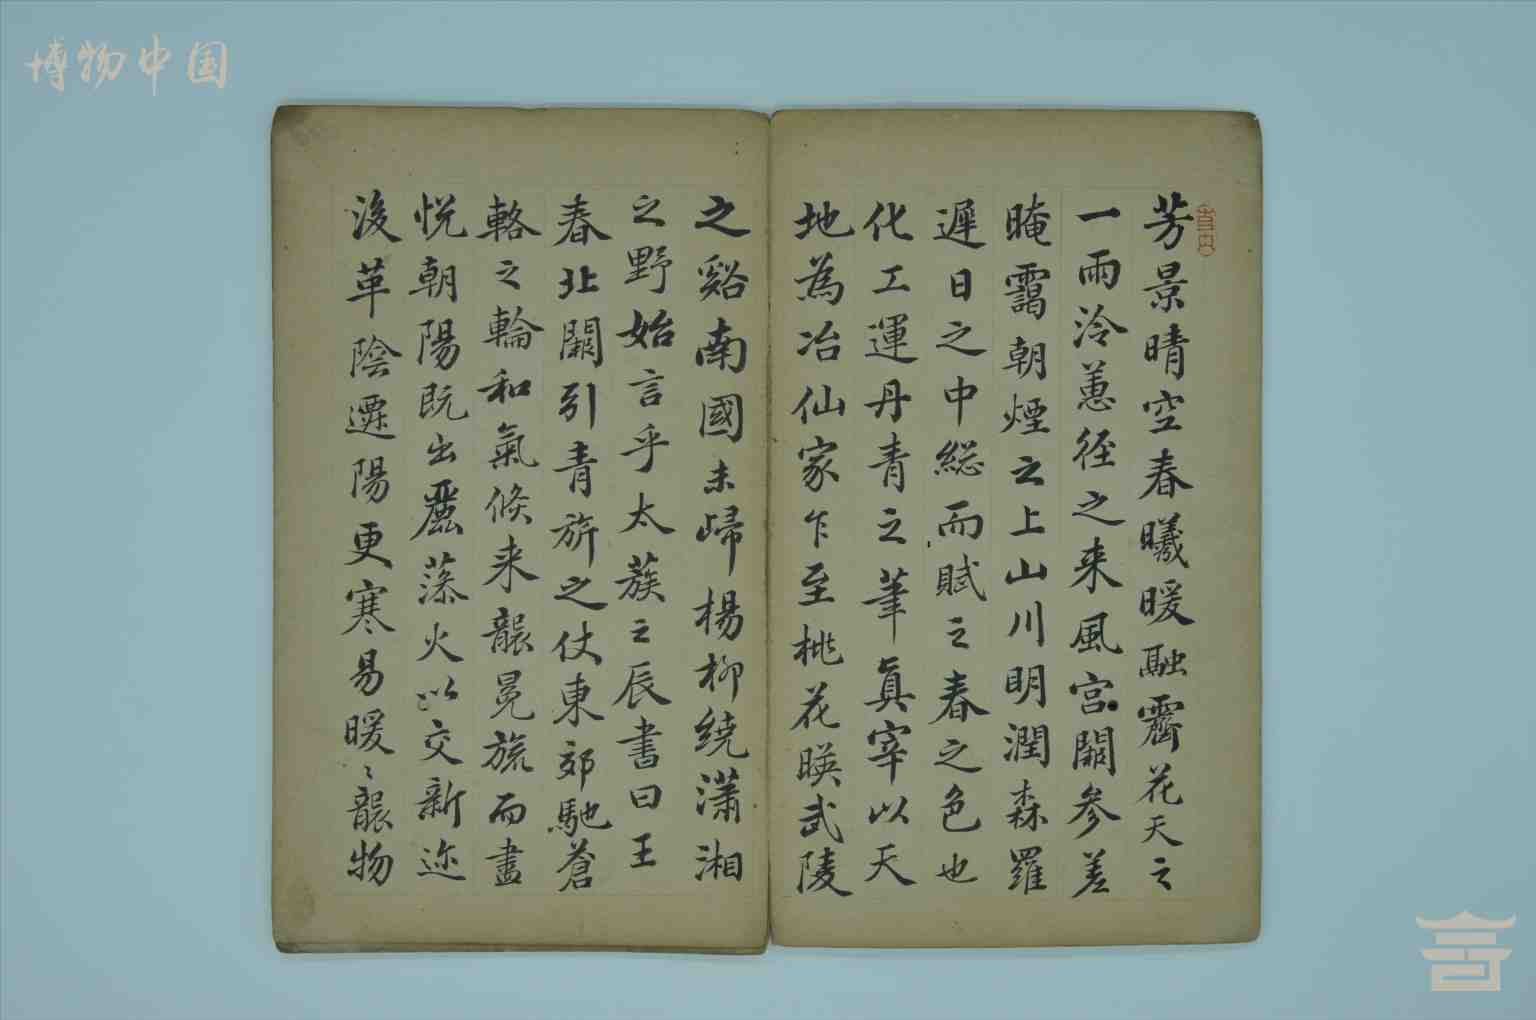 博物中国
芳景晴空春曦暖融霽花天之
一雨泠蕙径之来風宫闕参差
晻靄朝煙之上山川明潤森羅
遲日之中総而賦之春之色也
化工運丹青之筆真宰以天
地為冶仙家乍至桃花暎武陵
之谿南國未歸楊柳繞瀟湘
之野始言乎太蔟之辰書曰王
春北闕引青旂之仗東郊馳蒼
輅之輪和氣倏来襲冕旒而盡
悦朝陽既出麗藻火以交新迩
後革陰遷陽更寒易暖〻襲物